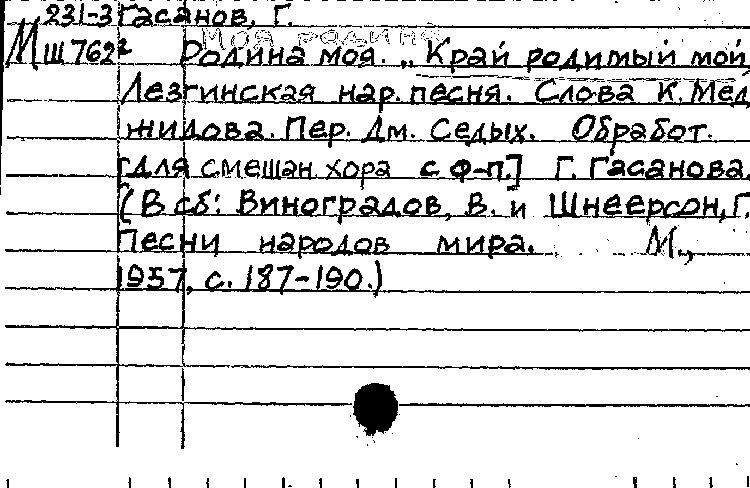 231-3 Гасанов, Г.
Моя родина
М Ш 762² Родина моя. „Край родимый мой
Лезгинская нар. песня. Слова К. Мед
жидова. Пер. Дм. Седых. Обработ.
[для смешан. хора с ф-п.] Г. Гасанова.
(В сб: Виноградов, В. и Шнеерсон, Г.
Песни народов мира. М.,
1957, с. 187-190.)